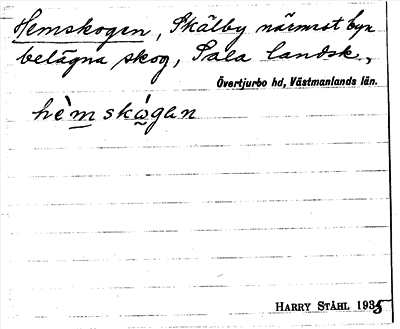 Hemskogen, Skälby närmast byn
belägna skog, Sala landsk.,
Övertjurbo hd, Västmanlands län.
hè̀m skó̀gen
HARRY STÅHL 1935